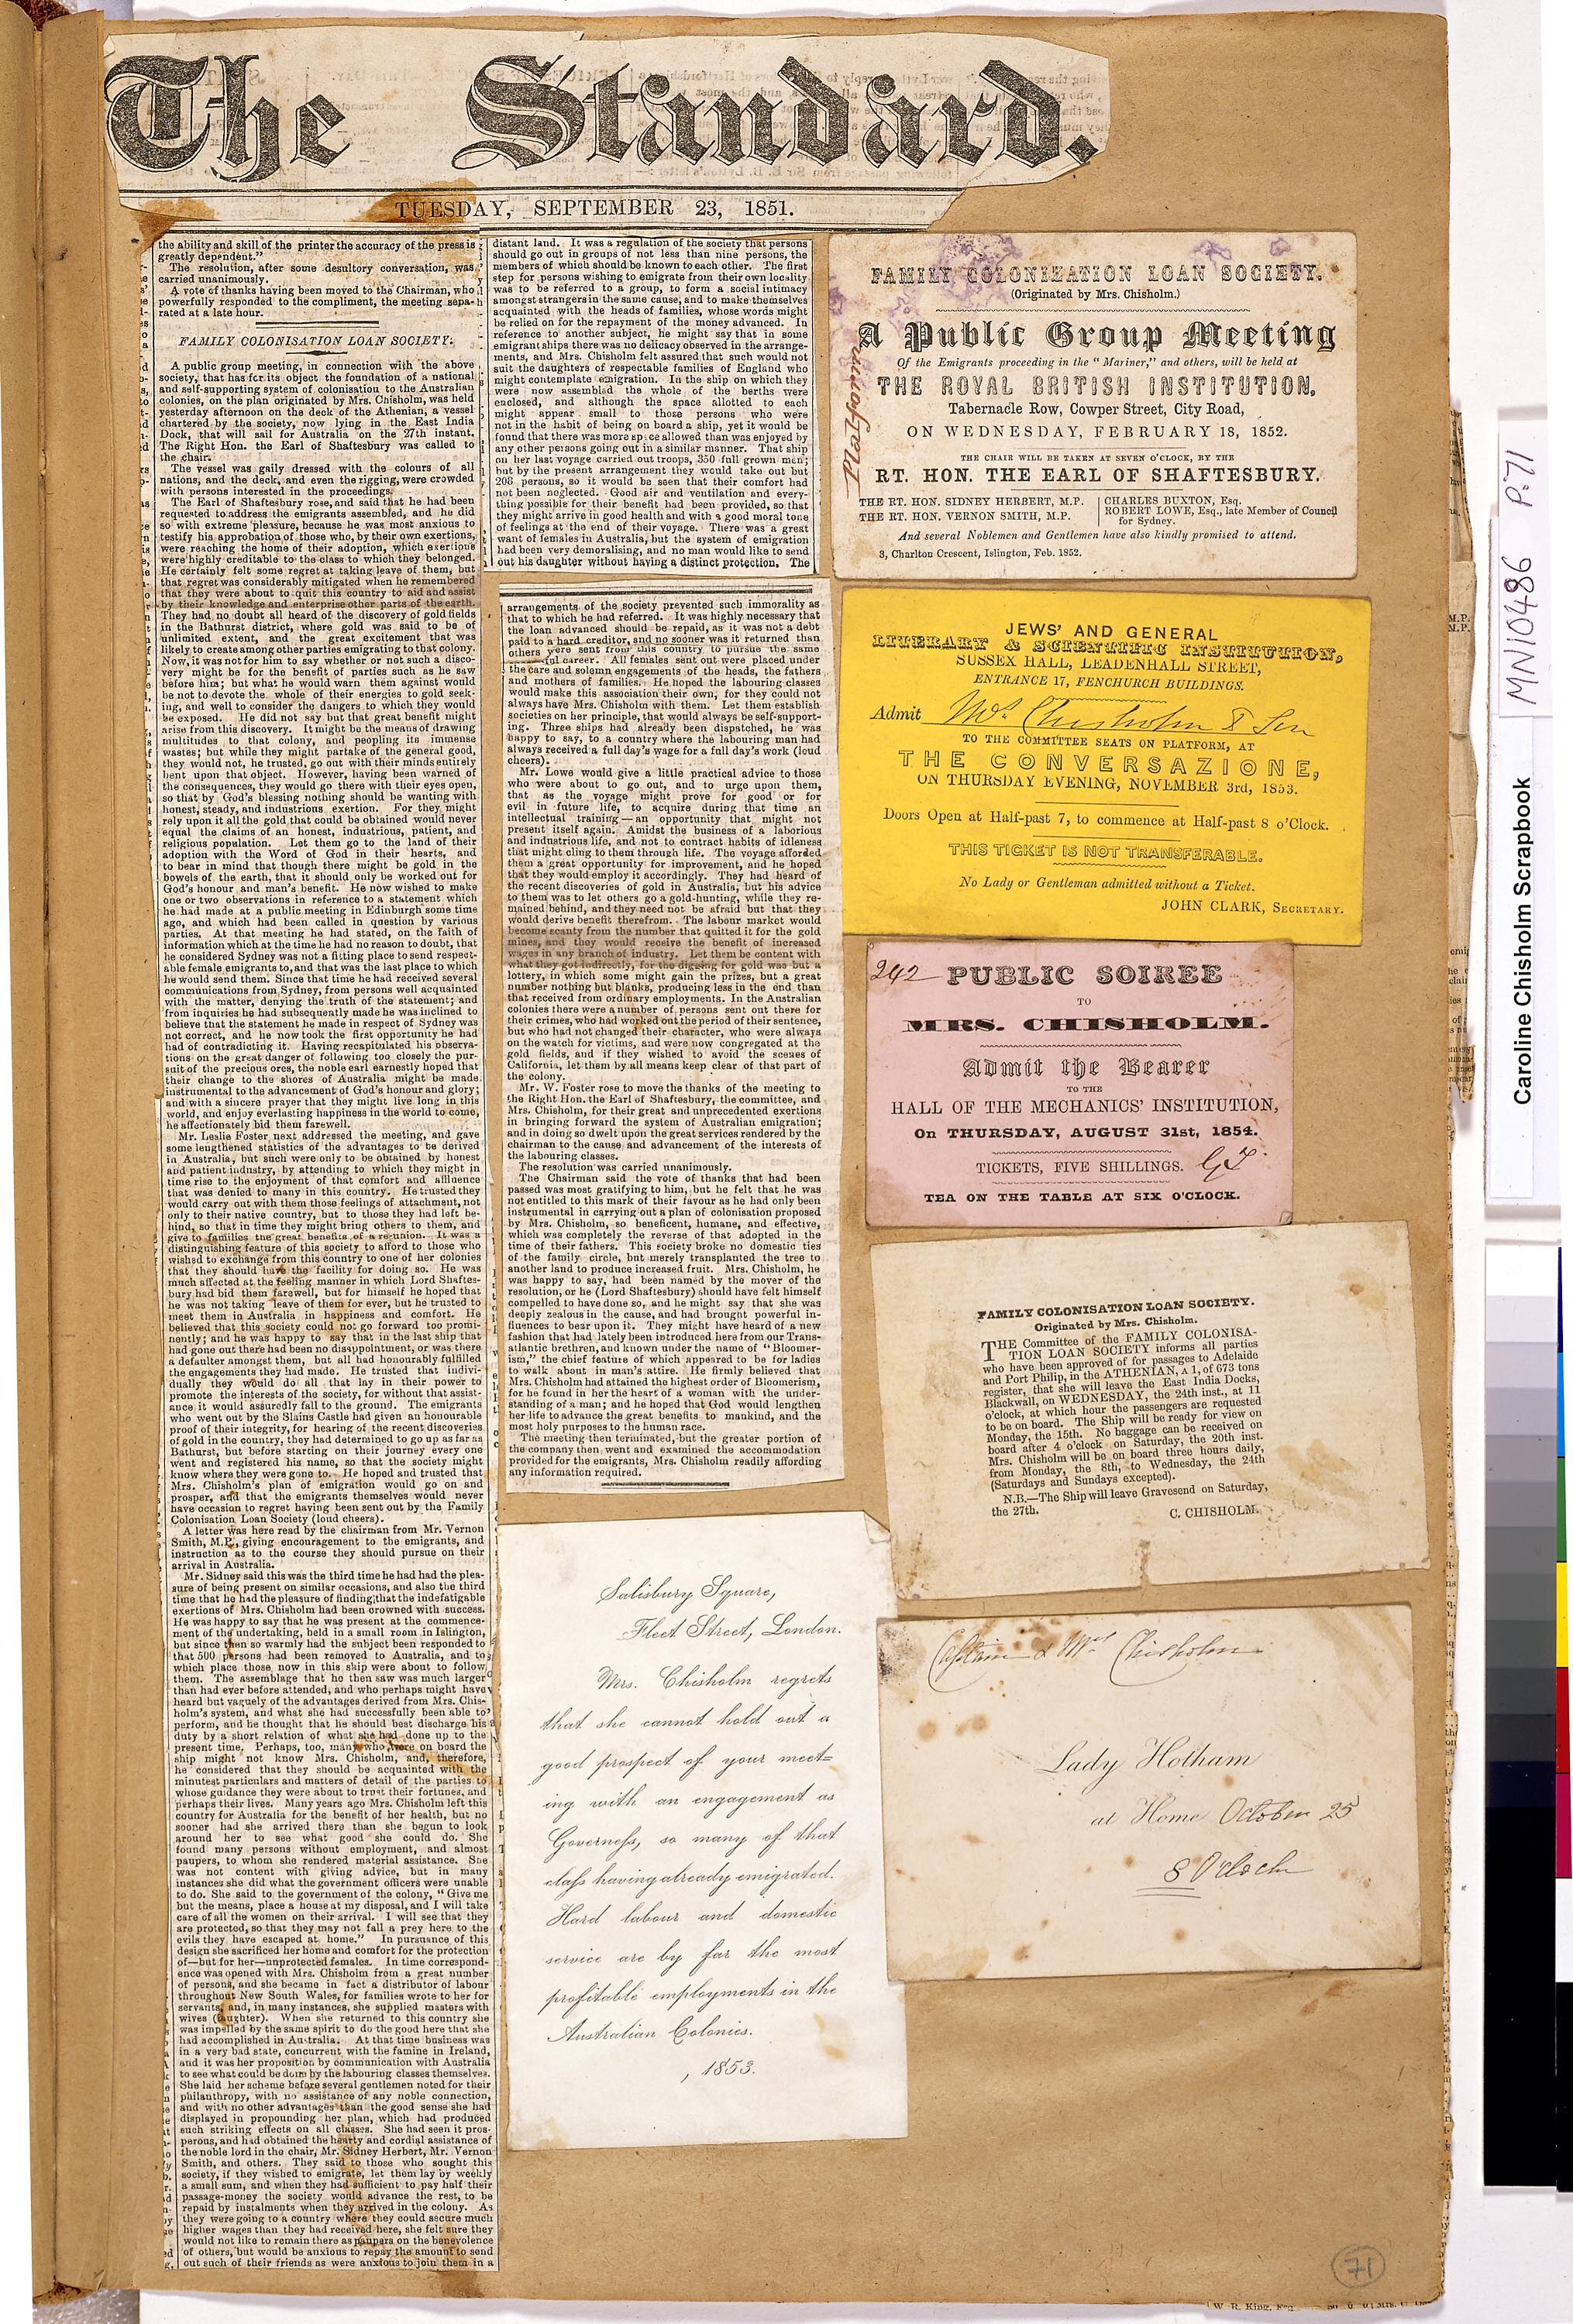 The Standard.
TUESDAY, SEPTEMBER 23, 1851.
the ability and skill of the printer the accuracy of the press is
greatly dependent."
The resolution, after some desultory conversation, was
carried unanimously.
A vote of thanks having been moved to the Chairman, who
powerfully responded to the compliment, the meeting sepa-
rated at a late hour.
FAMILY COLONISATION LOAN SOCIETY.
A public group meeting, in connection with the above
society, that has for its object the foundation of a national
and self-supporting system of colonisation to the Australian
colonies, on the plan originated by Mrs. Chisholm, was held
yesterday afternoon on the deck of the Athenian, a vessel
chartered by the society, now lying in the East India
Dock, that will sail for Australia on the 27th instant.
The Right Hon. the Earl of Shaftesbury was called to
the chair.
The vessel was gaily dressed with the colours of all
nations, and the deck, and even the rigging, were crowded
with persons interested in the proceedings.
The Earl of Shaftesbury rose, and said that he had been
requested to address the emigrants assembled, and he did
so with extreme pleasure, because he was most anxious to
testify his approbation of those who, by their own exertions,
were reaching the home of their adoption, which exertions
were highly creditable to the class to which they belonged.
He certainly felt some regret at taking leave of them, but
that regret was considerably mitigated when he remembered
that they were about to quit this country to aid and assist
by their knowledge and enterprise other parts of the earth.
They had no doubt all heard of the discovery of gold fields
in the Bathurst district, where gold was said to be of
unlimited extent, and the great excitement that was
likely to create among other parties emigrating to that colony.
Now, it was not for him to say whether or not such a disco-
very might be for the benefit of parties such as he saw
before him; but what he would warn them against would
be not to devote the whole of their energies to gold seek-
ing, and well to consider the dangers to which they would
be exposed. He did not say but that great benefit might
arise from this discovery. It might be the means of drawing
multitudes to that colony, and peopling its immense
wastes; but while they might partake of the general good,
they would not, he trusted, go out with their minds entirely
bent upon that object. However, having been warned of
the consequences, they would go there with their eyes open,
so that by God's blessing nothing should be wanting with
honest, steady, and industrious exertion. For they might
rely upon it all the gold that could be obtained would never
equal the claims of an honest, industrious, patient, and
religious population. Let them go to the land of their
adoption with the Word of God in their hearts, and
to bear in mind that though there might be gold in the
bowels of the earth, that it should only be worked out for
God's honour and man's benefit. He now wished to make
one or two observations in reference to a statement which
he had made at a public meeting in Edinburgh some time
ago, and which had been called in question by various
parties. At that meeting he had stated, on the faith of
information which at the time he had no reason to doubt, that
he considered Sydney was not a fitting place to send respect-
able female emigrants to, and that was the last place to which
he would send them. Since that time he had received several
communications from Sydney, from persons well acquainted
with the matter, denying the truth of the statement; and
from inquiries he had subsequently made he was inclined to
believe that the statement he made in respect of Sydney was
not correct, and he now took the first opportunity he had
had of contradicting it. Having recapitulated his observa-
tions on the great danger of following too closely the pur-
suit of the precious ores, the noble earl earnestly hoped that
their change to the shores of Australia might be made
instrumental to the advancement of God's honour and glory;
and with a sincere prayer that they might live long in this
world, and enjoy everlasting happiness in the world to come,
he affectionately bid them farewell.
Mr. Leslie Foster next addressed the meeting, and gave
some lengthened statistics of the advantages to be derived
in Australia, but such were only to be obtained by honest
and patient industry, by attending to which they might in
time rise to the enjoyment of that comfort and affluence
that was denied to many in this country. He trusted they
would carry out with them those feelings of attachment, not
only to their native country, but to those they had left be-
hind, so that in time they might bring others to them, and
give to families the great benefits of a re-union. It was a
distinguishing feature of this society to afford to those who
wished to exchange from this country to one of her colonies
that they should have the facility for doing so. He was
much affected at the feeling manner in which Lord Shaftes-
bury had bid them farewell, but for himself he hoped that
he was not taking leave of them for ever, but he trusted to
meet them in Australia in happiness and comfort. He
believed that this society could not go forward too promi-
nently; and he was happy to say that in the last ship that
had gone out there had been no disappointment, or was there
a defaulter amongst them, but all had honourably fulfilled
the engagements they had made. He trusted that indivi-
dually they would do all that lay in their power to
promote the interests of the society, for without that assist-
ance it would assuredly fall to the ground. The emigrants
who went out by the Slains Castle had given an honourable
proof of their integrity, for hearing of the recent discoveries
of gold in the country, they had determined to go up as far as
Bathurst, but before starting on their journey every one
went and registered his name, so that the society might
know where they were gone to. He hoped and trusted that
Mrs. Chisholm's plan of emigration would go on and
prosper, and that the emigrants themselves would never
have occasion to regret having been sent out by the Family
Colonisation Loan Society (loud cheers).
A letter was here read by the chairman from Mr. Vernon
Smith, M.P., giving encouragement to the emigrants, and
instruction as to the course they should pursue on their
arrival in Australia.
Mr. Sidney said this was the third time he had had the plea-
sure of being present on similar occasions, and also the third
time that he had the pleasure of finding that the indefatigable
exertions of Mrs. Chisholm had been crowned with success.
He was happy to say that he was present at the commence-
ment of the undertaking, held in a small room in Islington,
but since then so warmly had the subject been responded to
that 500 persons had been removed to Australia, and to
which place those now in this ship were about to follow
them. The assemblage that he then saw was much larger
than had ever before attended, and who perhaps might have
heard but vaguely of the advantages derived from Mrs. Chis-
holm's system, and what she had successfully been able to
perform, and he thought that he should best discharge his
duty by a short relation of what she had done up to the
present time. Perhaps, too, many who were on board the
ship might not know Mrs. Chisholm, and, therefore,
he considered that they should be acquainted with the
minutest particulars and matters of detail of the parties to
whose guidance they were about to trust their fortunes, and
perhaps their lives. Many years ago Mrs. Chisholm left this
country for Australia for the benefit of her health, but no
sooner had she arrived there than she begun to look
around her to see what good she could do. She
found many persons without employment, and almost
paupers, to whom she rendered material assistance. She
was not content with giving advice, but in many
instances she did what the government officers were unable
to do. She said to the government of the colony, "Give me
but the means, place a house at my disposal, and I will take
care of all the women on their arrival. I will see that they
are protected, so that they may not fall a prey here to the
evils they have escaped at home." In pursuance of this
design she sacrificed her home and comfort for the protection
of—but for her—unprotected females. In time correspond-
ence was opened with Mrs. Chisholm from a great number
of persons, and she became in fact a distributor of labour
throughout New South Wales, for families wrote to her for
servants, and, in many instances, she supplied masters with
wives (laughter). When she returned to this country she
was impelled by the same spirit to do the good here that she
had accomplished in Australia. At that time business was
in a very bad state, concurrent with the famine in Ireland,
and it was her proposition by communication with Australia
to see what could be done by the labouring classes themselves.
She laid her scheme before several gentlemen noted for their
philanthropy, with no assistance of any noble connection,
and with no other advantages than the good sense she had
displayed in propounding her plan, which had produced
such striking effects on all classes. She had seen it pros-
perous, and had obtained the hearty and cordial assistance of
the noble lord in the chair, Mr. Sidney Herbert, Mr. Vernon
Smith, and others. They said to those who sought this
society, if they wished to emigrate, let them lay by weekly
a small sum, and when they had sufficient to pay half their
passage-money the society would advance the rest, to be
repaid by instalments when they arrived in the colony. As
they were going to a country where they could secure much
higher wages than they had received here, she felt sure they
would not like to remain there as paupers on the benevolence
of others, but would be anxious to repay the amount to send
out such of their friends as were anxious to join them in a
distant land. It was a regulation of the society that persons
should go out in groups of not less than nine persons, the
members of which should be known to each other. The first
step for persons wishing to emigrate from their own locality
was to be referred to a group, to form a social intimacy
amongst strangers in the same cause, and to make themselves
acquainted with the heads of families, whose words might
be relied on for the repayment of the money advanced. In
reference to another subject, he might say that in some
emigrant ships there was no delicacy observed in the arrange-
ments, and Mrs. Chisholm felt assured that such would not
suit the daughters of respectable families of England who
might contemplate emigration. In the ship on which they
were now assembled the whole of the berths were
enclosed, and although the space allotted to each
might appear small to those persons who were
not in the habit of being on board a ship, yet it would be
found that there was more space allowed than was enjoyed by
any other persons going out in a similar manner. That ship
on her last voyage carried out troops, 350 full grown men;
but by the present arrangement they would take out but
208 persons, so it would be seen that their comfort had
not been neglected. Good air and ventilation and every-
thing possible for their benefit had been provided, so that
they might arrive in good health and with a good moral tone
of feelings at the end of their voyage. There was a great
want of females in Australia, but the system of emigration
had been very demoralising, and no man would like to send
out his daughter without having a distinct protection. The
arrangements of the society prevented such immorality as
that to which he had referred. It was highly necessary that
the loan advanced should be repaid, as it was not a debt
paid to a hard creditor, and no sooner was it returned than
others were sent from this country to pursue the same
ful career. All females sent out were placed under
the care and solemn engagements of the heads, the fathers
and mothers of families. He hoped the labouring classes
would make this association their own; for they could not
always have Mrs. Chisholm with them. Let them establish
societies on her principle, that would always be self-support-
ing. Three ships had already been dispatched, he was
happy to say, to a country where the labouring man had
always received a full day's wage for a full day's work (loud
cheers).
Mr. Lowe would give a little practical advice to those
who were about to go out, and to urge upon them,
that as the voyage might prove for good or for
evil in future life, to acquire during that time an
intellectual training—an opportunity that might not
present itself again. Amidst the business of a laborious
and industrious life, and not to contract habits of idleness
that might cling to them through life. The voyage afforded
them a great opportunity for improvement, and he hoped
that they would employ it accordingly. They had heard of
the recent discoveries of gold in Australia, but his advice
to them was to let others go a gold-hunting, while they re-
mained behind, and they need not be afraid but that they
would derive benefit therefrom. The labour market would
become scanty from the number that quitted it for the gold
mines, and they would receive the benefit of increased
wages in any branch of industry. Let them be content with
what they got indirectly, for the digging for gold was but a
lottery, in which some might gain the prizes, but a great
number nothing but blanks, producing less in the end than
that received from ordinary employments. In the Australian
colonies there were a number of persons sent out there for
their crimes, who had worked out the period of their sentence,
but who had not changed their character, who were always
on the watch for victims, and were now congregated at the
gold fields, and if they wished to avoid the scenes of
California, let them by all means keep clear of that part of
the colony.
Mr. W. Foster rose to move the thanks of the meeting to
the Right Hon. the Earl of Shaftesbury, the committee, and
Mrs. Chisholm, for their great and unprecedented exertions
in bringing forward the system of Australian emigration;
and in doing so dwelt upon the great services rendered by the
chairman to the cause and advancement of the interests of
the labouring classes.
The resolution was carried unanimously.
The Chairman said the vote of thanks that had been
passed was most gratifying to him, but he felt that he was
not entitled to this mark of their favour as he had only been
instrumental in carrying out a plan of colonisation proposed
by Mrs. Chisholm, so beneficent, humane, and effective,
which was completely the reverse of that adopted in the
time of their fathers. This society broke no domestic ties
of the family circle, but merely transplanted the tree to
another land to produce increased fruit. Mrs. Chisholm, he
was happy to say, had been named by the mover of the
resolution, or he (Lord Shaftesbury) should have felt himself
compelled to have done so, and he might say that she was
deeply zealous in the cause, and had brought powerful in-
fluences to bear upon it. They might have heard of a new
fashion that had lately been introduced here from our Trans-
atlantic brethren, and known under the name of "Bloomer-
ism," the chief feature of which appeared to be for ladies
to walk about in man's attire. He firmly believed that
Mrs. Chisholm had attained the highest order of Bloomerism,
for be found in her the heart of a woman with the under-
standing of a man; and he hoped that God would lengthen
her life to advance the great benefits to mankind, and the
most holy purposes to the human race.
The meeting then terminated, but the greater portion of
the company then went and examined the accommodation
provided for the emigrants, Mrs. Chisholm readily affording
any information required.
FAMILY COLONIZATION LOAN SOCIETY.
(Originated by Mrs. Chisholm.)
A Public Group Meeting
Of the Emigrants proceeding in the "Mariner," and others, will be held at
THE ROYAL BRITISH INSTITUTION,
Tabernacle Row, Cowper Street, City Road,
ON WEDNESDAY, FEBRUARY 18, 1852.
THE CHAIR WILL BE TAKEN AT SEVEN O'CLOCK, BY THE
RT. HON. THE EARL OF SHAFTESBURY.
THE RT. HON. SIDNEY HERBERT, M.P.
THE RT. HON. VERNON SMITH, M.P.
CHARLES BUXTON, Esq.
ROBERT LOWE, Esq., late Member of Council
for Sydney.
And several Noblemen and Gentlemen have also kindly promised to attend.
3, Charlton Crescent, Islington, Feb. 1852.
Platform
JEWS' AND GENERAL
LITERARY & SCIENTIFIC INSTITUTION,
SUSSEX HALL, LEADENHALL STREET,
ENTRANCE 17, FENCHURCH BUILDINGS.
Admit Mrs. Chisholm & Son
TO THE COMMITTEE SEATS ON PLATFORM, AT
THE CONVERSAZIONE,
ON THURSDAY EVENING, NOVEMBER 3rd, 1853.
Doors Open at Half-past 7, to commence at Half-past 8 o'Clock.
THIS TICKET IS NOT TRANSFERABLE.
No Lady or Gentleman admitted without a Ticket.
JOHN CLARK, SECRETARY.
242 PUBLIC SOIREE
TO
MRS. CHISHOLM.
Admit the Bearer
TO THE
HALL OF THE MECHANICS' INSTITUTION,
On THURSDAY, AUGUST 31st, 1854.
TICKETS, FIVE SHILLINGS.
TEA ON THE TABLE AT SIX O'CLOCK.
FAMILY COLONISATION LOAN SOCIETY.
Originated by Mrs. Chisholm.
THE Committee of the FAMILY COLONISA-
TION LOAN SOCIETY informs all parties
who have been approved of for passages to Adelaide
and Port Philip, in the ATHENIAN, A 1, of 673 tons
register, that she will leave the East India Docks,
Blackwall, on WEDNESDAY, the 24th inst., at 11
o'clock, at which hour the passengers are requested
to be on board. The Ship will be ready for view on
Monday, the 15th. No baggage can be received on
board after 4 o'clock on Saturday, the 20th inst.
Mrs. Chisholm will be on board three hours daily,
from Monday, the 8th, to Wednesday, the 24th
(Saturdays and Sundays excepted).
N.B.—The Ship will leave Gravesend on Saturday,
the 27th.
C. CHISHOLM.
Salisbury Square,
Fleet Street, London.
Mrs. Chisholm regrets
that she cannot hold out a
good prospect of your meet=
ing with an engagement as
Governess, so many of that
class having already emigrated.
Hard labour and domestic
service are by far the most
profitable employments in the
Australian Colonies.
, 1853.
Captain & Mrs Chisholm
Lady Hotham
at Home October 25
8 O'clock
71
MN10486 P.71
Caroline Chisholm Scrapbook
W. R. King, Esq